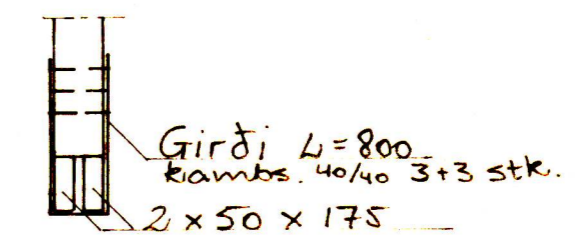 Girði L=800
kambs. 40/40 3+3 stk.
2 x 50 x 175